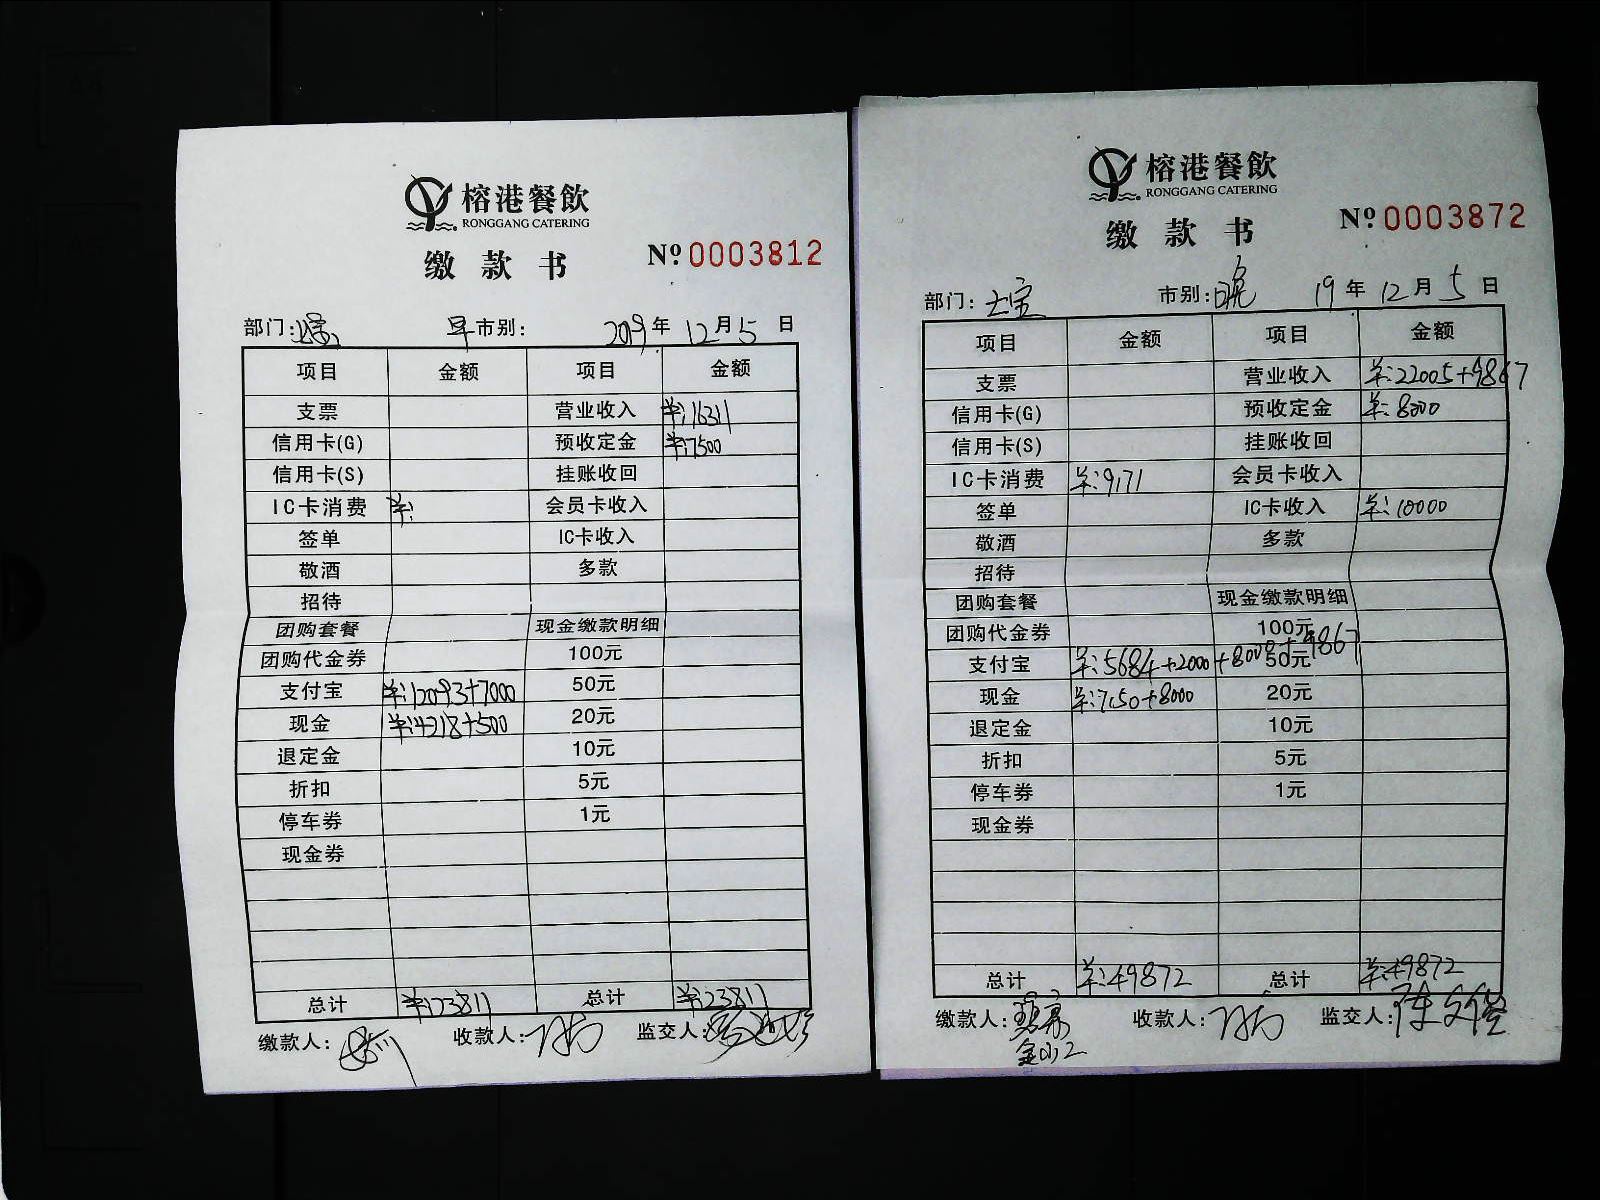 榕港餐飲
RONGGANG CATERING
缴款书
№ 0003812
部门: 早市别: 2019年12月5日
项目 金额 项目 金额
支票 营业收入 ¥:16311
信用卡(G) 预收定金 ¥:7500
信用卡(S) 挂账收回
IC卡消费 ¥: 会员卡收入
签单 IC卡收入
敬酒 多款
招待
团购套餐 现金缴款明细
团购代金券 100元
支付宝 ¥:12093+7000 50元
现金 ¥:4218+500 20元
退定金 10元
折扣 5元
停车券 1元
现金券
总计 ¥:23811 总计 ¥:23811
缴款人: 收款人: 监交人:
榕港餐飲
RONGGANG CATERING
缴款书
№ 0003872
部门: 大宝 市别: 晚 19年12月5日
项目 金额 项目 金额
支票 营业收入 ¥:22005+9867
信用卡(G) 预收定金 ¥:8000
信用卡(S) 挂账收回
IC卡消费 ¥:9171 会员卡收入
签单 IC卡收入 ¥:10000
敬酒 多款
招待
团购套餐 现金缴款明细
团购代金券 100元
支付宝 ¥:5684+2000+8000+9867 50元
现金 ¥:7150+8000 20元
退定金 10元
折扣 5元
停车券 1元
现金券
总计 ¥:49872 总计 ¥:49872
缴款人: 收款人: 监交人:陈文